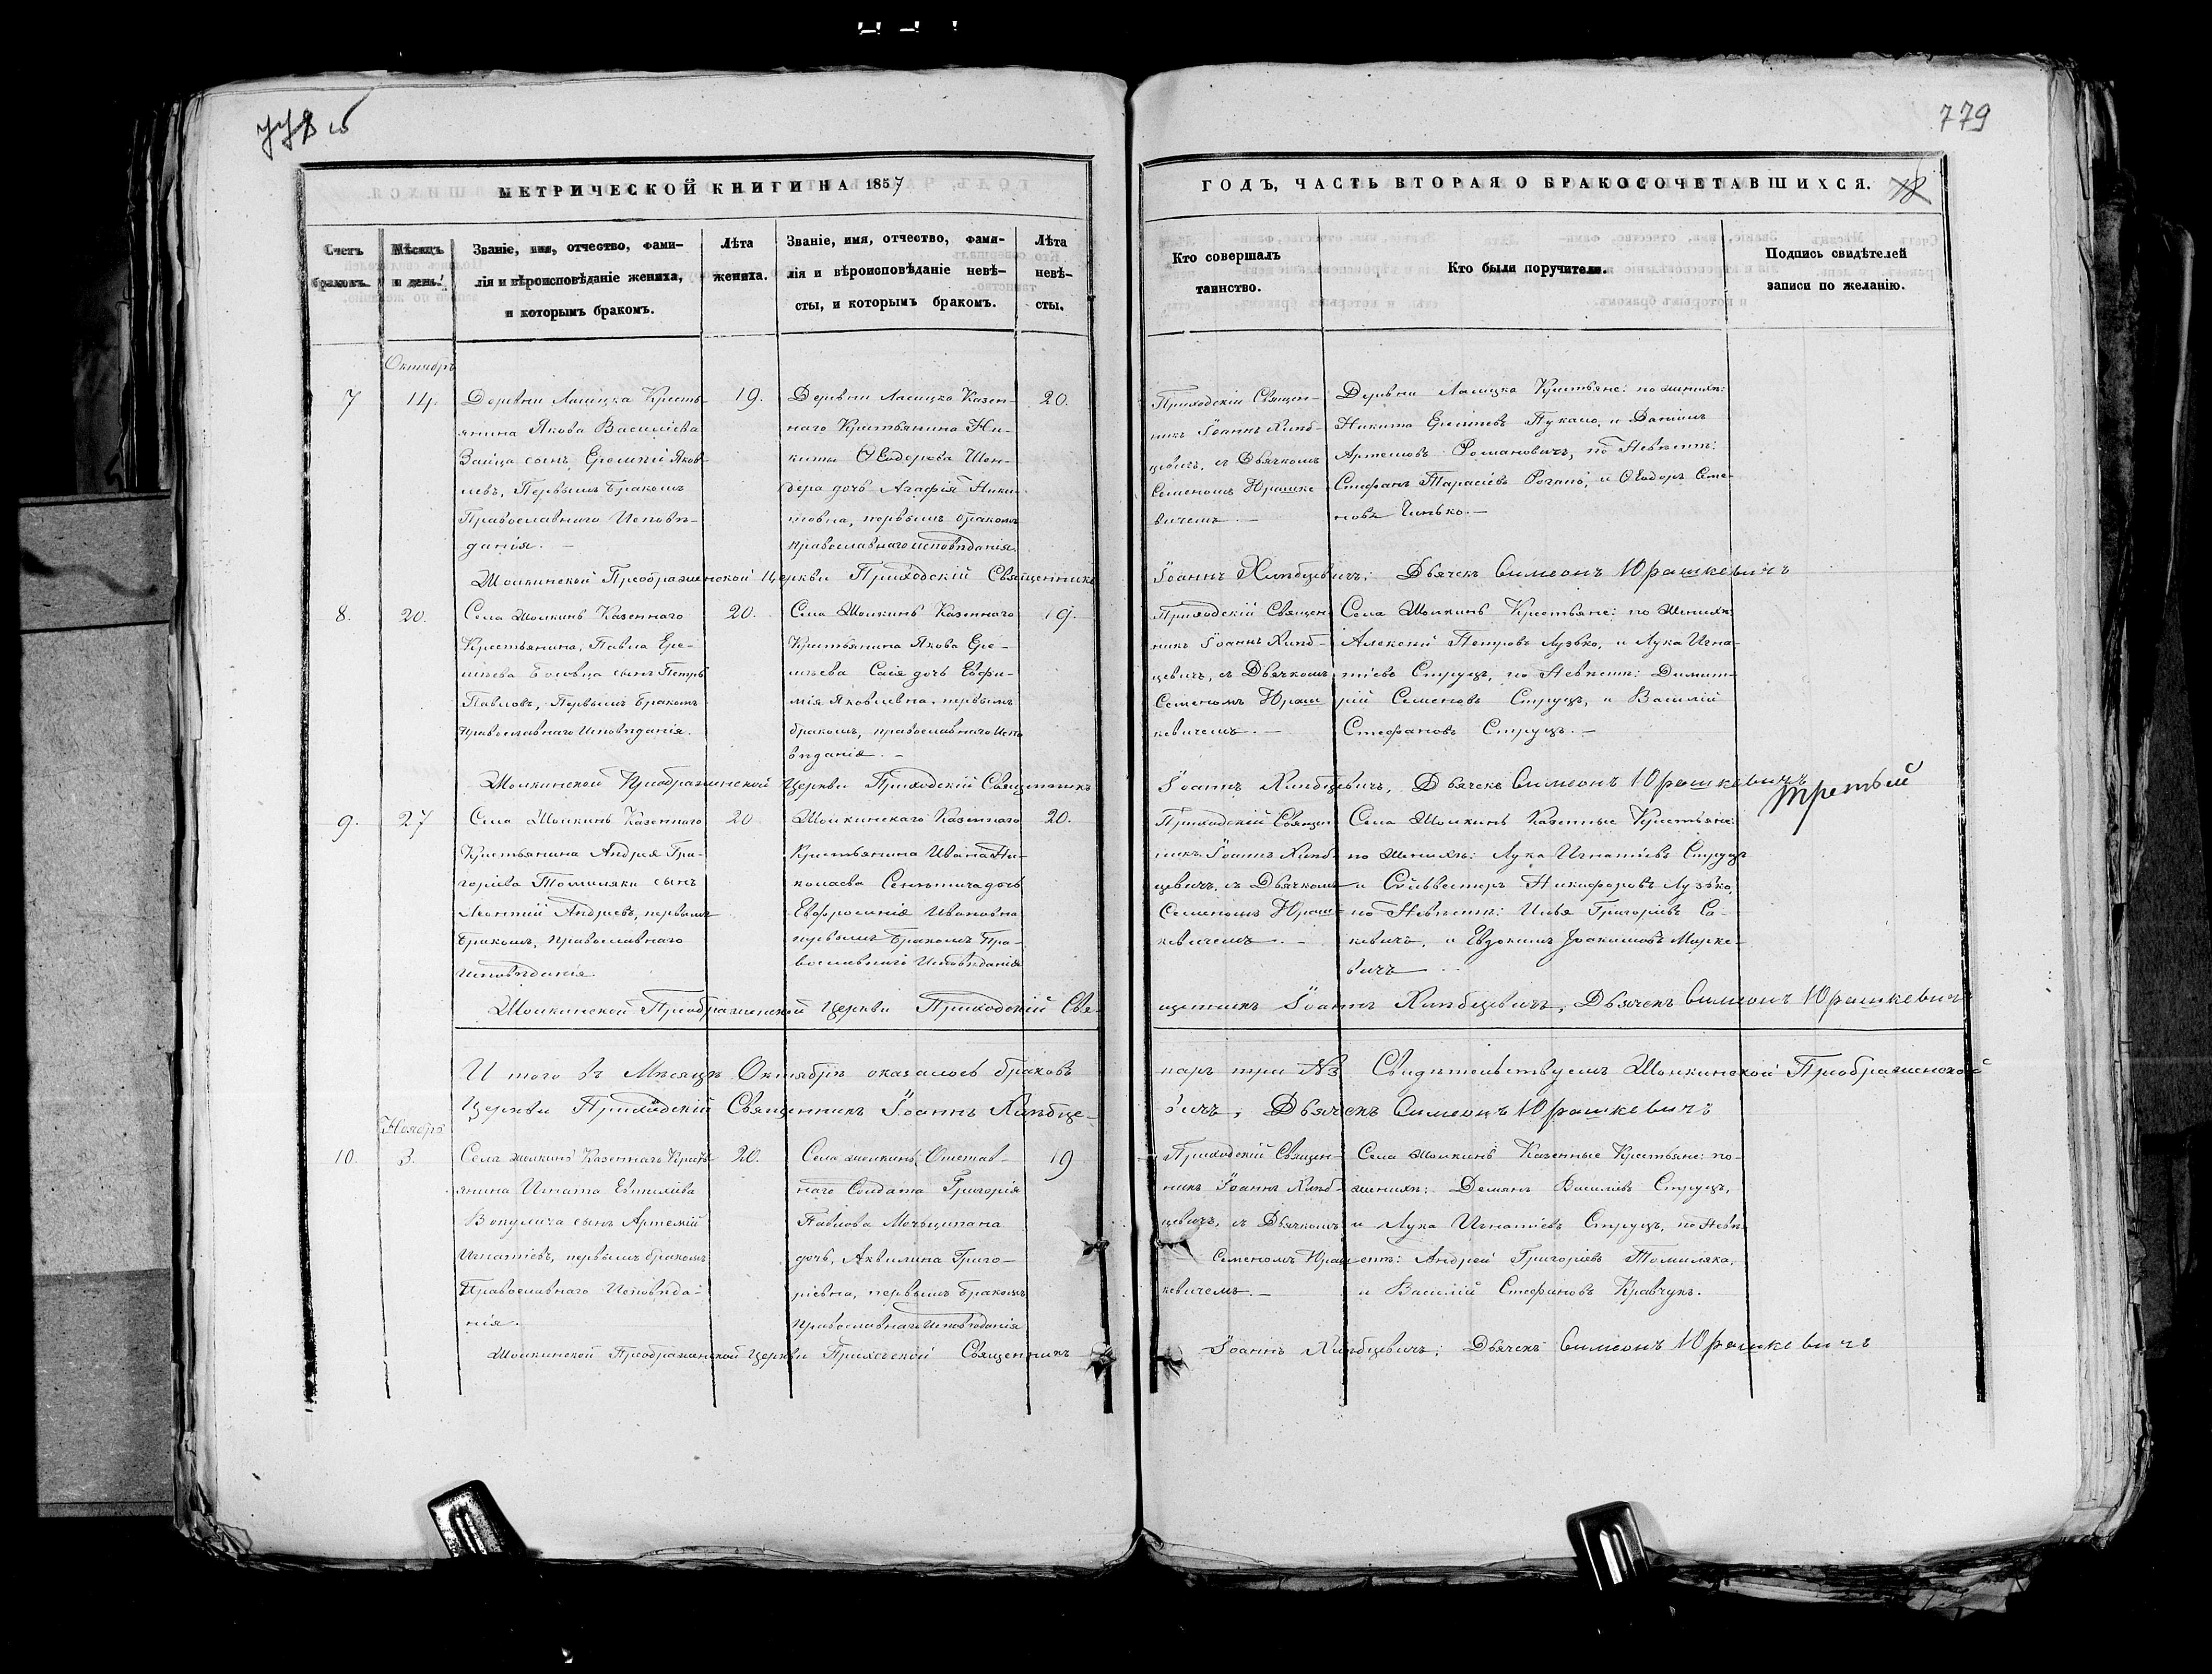 779
МЕТРИЧЕСКОЙ КНИГИ НА 1857
ГОДЪ, ЧАСТЬ ВТОРАЯ О БРАКОСОЧЕТАВШИХСЯ.
Счетъ браковъ.
Мѣсяцъ и день.
Званіе, имя, отчество, фами-
лія и вѣроисповѣданіе жениха,
и которымъ бракомъ.
Лѣта
жениха.
Званіе, имя, отчество, фами-
лія и вѣроисповѣданіе невѣ-
сты, и которымъ бракомъ.
Лѣта
невѣ-
сты.
Кто совершалъ
таинство.
Кто были поручители.
Подпись свидѣтелей
записи по желанію.
Октябрь
7
14.
Деревни Ласицка Кресть-
янина Якова Василіева
Зайца сынъ Еремѣй Яков-
левъ, Первымъ Бракомъ
Православнаго Исповѣ-
данія. —
19.
Деревни Ласицка Казен-
наго Крестьянина Ни-
киты Ѳеодорова Шен-
дера дочь Агафія Ники-
товна, первымъ бракомъ
православнаго исповѣданія.
20.
Приходскій Священ-
никъ Іоаннъ Хлѣб-
цевичъ, съ Дьячкомъ
Семеномъ Юрашке
вичемъ. —
Деревни Ласицка Крестьяне: по женихѣ:
Никита Пукало, и Даніилъ
Артемовъ Романовичъ, по Невѣстѣ:
Стефанъ Тарасіевъ и Ѳеодоръ Семе-
новъ —
Преображенской Церкви Приходскій Священникъ Іоаннъ Хлѣбцевичъ; Дьячекъ Симеонъ Юрашкевичъ
8.
20.
Села Казеннаго
Крестьянина, Павла Ере-
сынъ Петръ
Павловъ, Первымъ Бракомъ
Православнаго Исповѣданія.
20.
Села Казеннаго
Крестьянина Якова Ере-
дочь Евфи-
мія Яковлевна, первымъ
бракомъ, православнаго Испо
вѣданія. —
19.
Приходскій Священ-
никъ Іоаннъ Хлѣб-
цевичъ, съ Дьячкомъ
Семеномъ Юраш
кевичемъ. —
Села Крестьяне: по Женихѣ:
Алексѣй Петровъ Лузько, и Лука Игна-
тіевъ Струцъ, по Невѣстѣ: Димит-
рій Семеновъ Струцъ, и Василій
Стефановъ Струцъ. —
Преображенской Церкви Приходскій Священникъ Іоаннъ Хлѣбцевичъ, Дьячекъ Симеонъ Юрашкевичъ
третій
9.
27
Села Казеннаго
Крестьянина Андрея Гри-
горіева Томиляки сынъ
Леонтій Андреевъ, первымъ
Бракомъ, православнаго
Исповѣданія.
20
Казеннаго
Крестьянина Ивана Ни-
колаева дочь
Евфросинія Ивановна
первымъ Бракомъ Пра-
вославнаго Исповѣданія
20.
Приходскій Священ
никъ Іоаннъ Хлѣб-
цевичъ, съ Дьячкомъ
Семеномъ Юраш-
кевичемъ. —
Села Казенные Крестьяне:
по женихѣ: Лука Игнатіевъ Струцъ
и Сильвестеръ Никифоровъ Лузько,
по Невѣстѣ: Илья Григоріевъ Са-
кевичъ, и Евдокимъ Іоакимовъ Марке-
вичъ
Преображенской Церкви Приходскій Свя-
щенникъ Іоаннъ Хлѣбцевичъ, Дьячекъ Симеонъ Юрашкевичъ
И того въ Мѣсяцѣ Октябрѣ оказалось браковъ паръ три №3 Свидѣтельствуемъ Преображенской
Церкви Приходскій Священникъ Іоаннъ Хлѣбцевичъ, Дьячекъ Симеонъ Юрашкевичъ
Ноябрь
10.
3.
Села Казеннаго Кресть-
янина Игната
Вакулича сынъ Артемій
Игнатіевъ, первымъ бракомъ
Православнаго Исповѣда-
нія.
20.
Села Отстав-
наго Солдата Григорія
Павлова
дочь, Аквилина Григо-
ріевна, первымъ Бракомъ
Православнаго Исповѣданія
19
Приходскій Священ-
никъ Іоаннъ Хлѣб-
цевичъ, съ Дьячкомъ
Семеномъ Юраш
кевичемъ. —
Села Казенные Крестьяне: по-
женихѣ: Демянъ Василіевъ Струцъ,
и Лука Игнатіевъ Струцъ, по Невѣ-
стѣ: Андрей Григоріевъ Томиляка,
и Василій Стефановъ Кравчукъ.
Преображенской Церкви Приходской Священникъ Іоаннъ Хлѣбцевичъ; Дьячекъ Симеонъ Юрашкевичъ